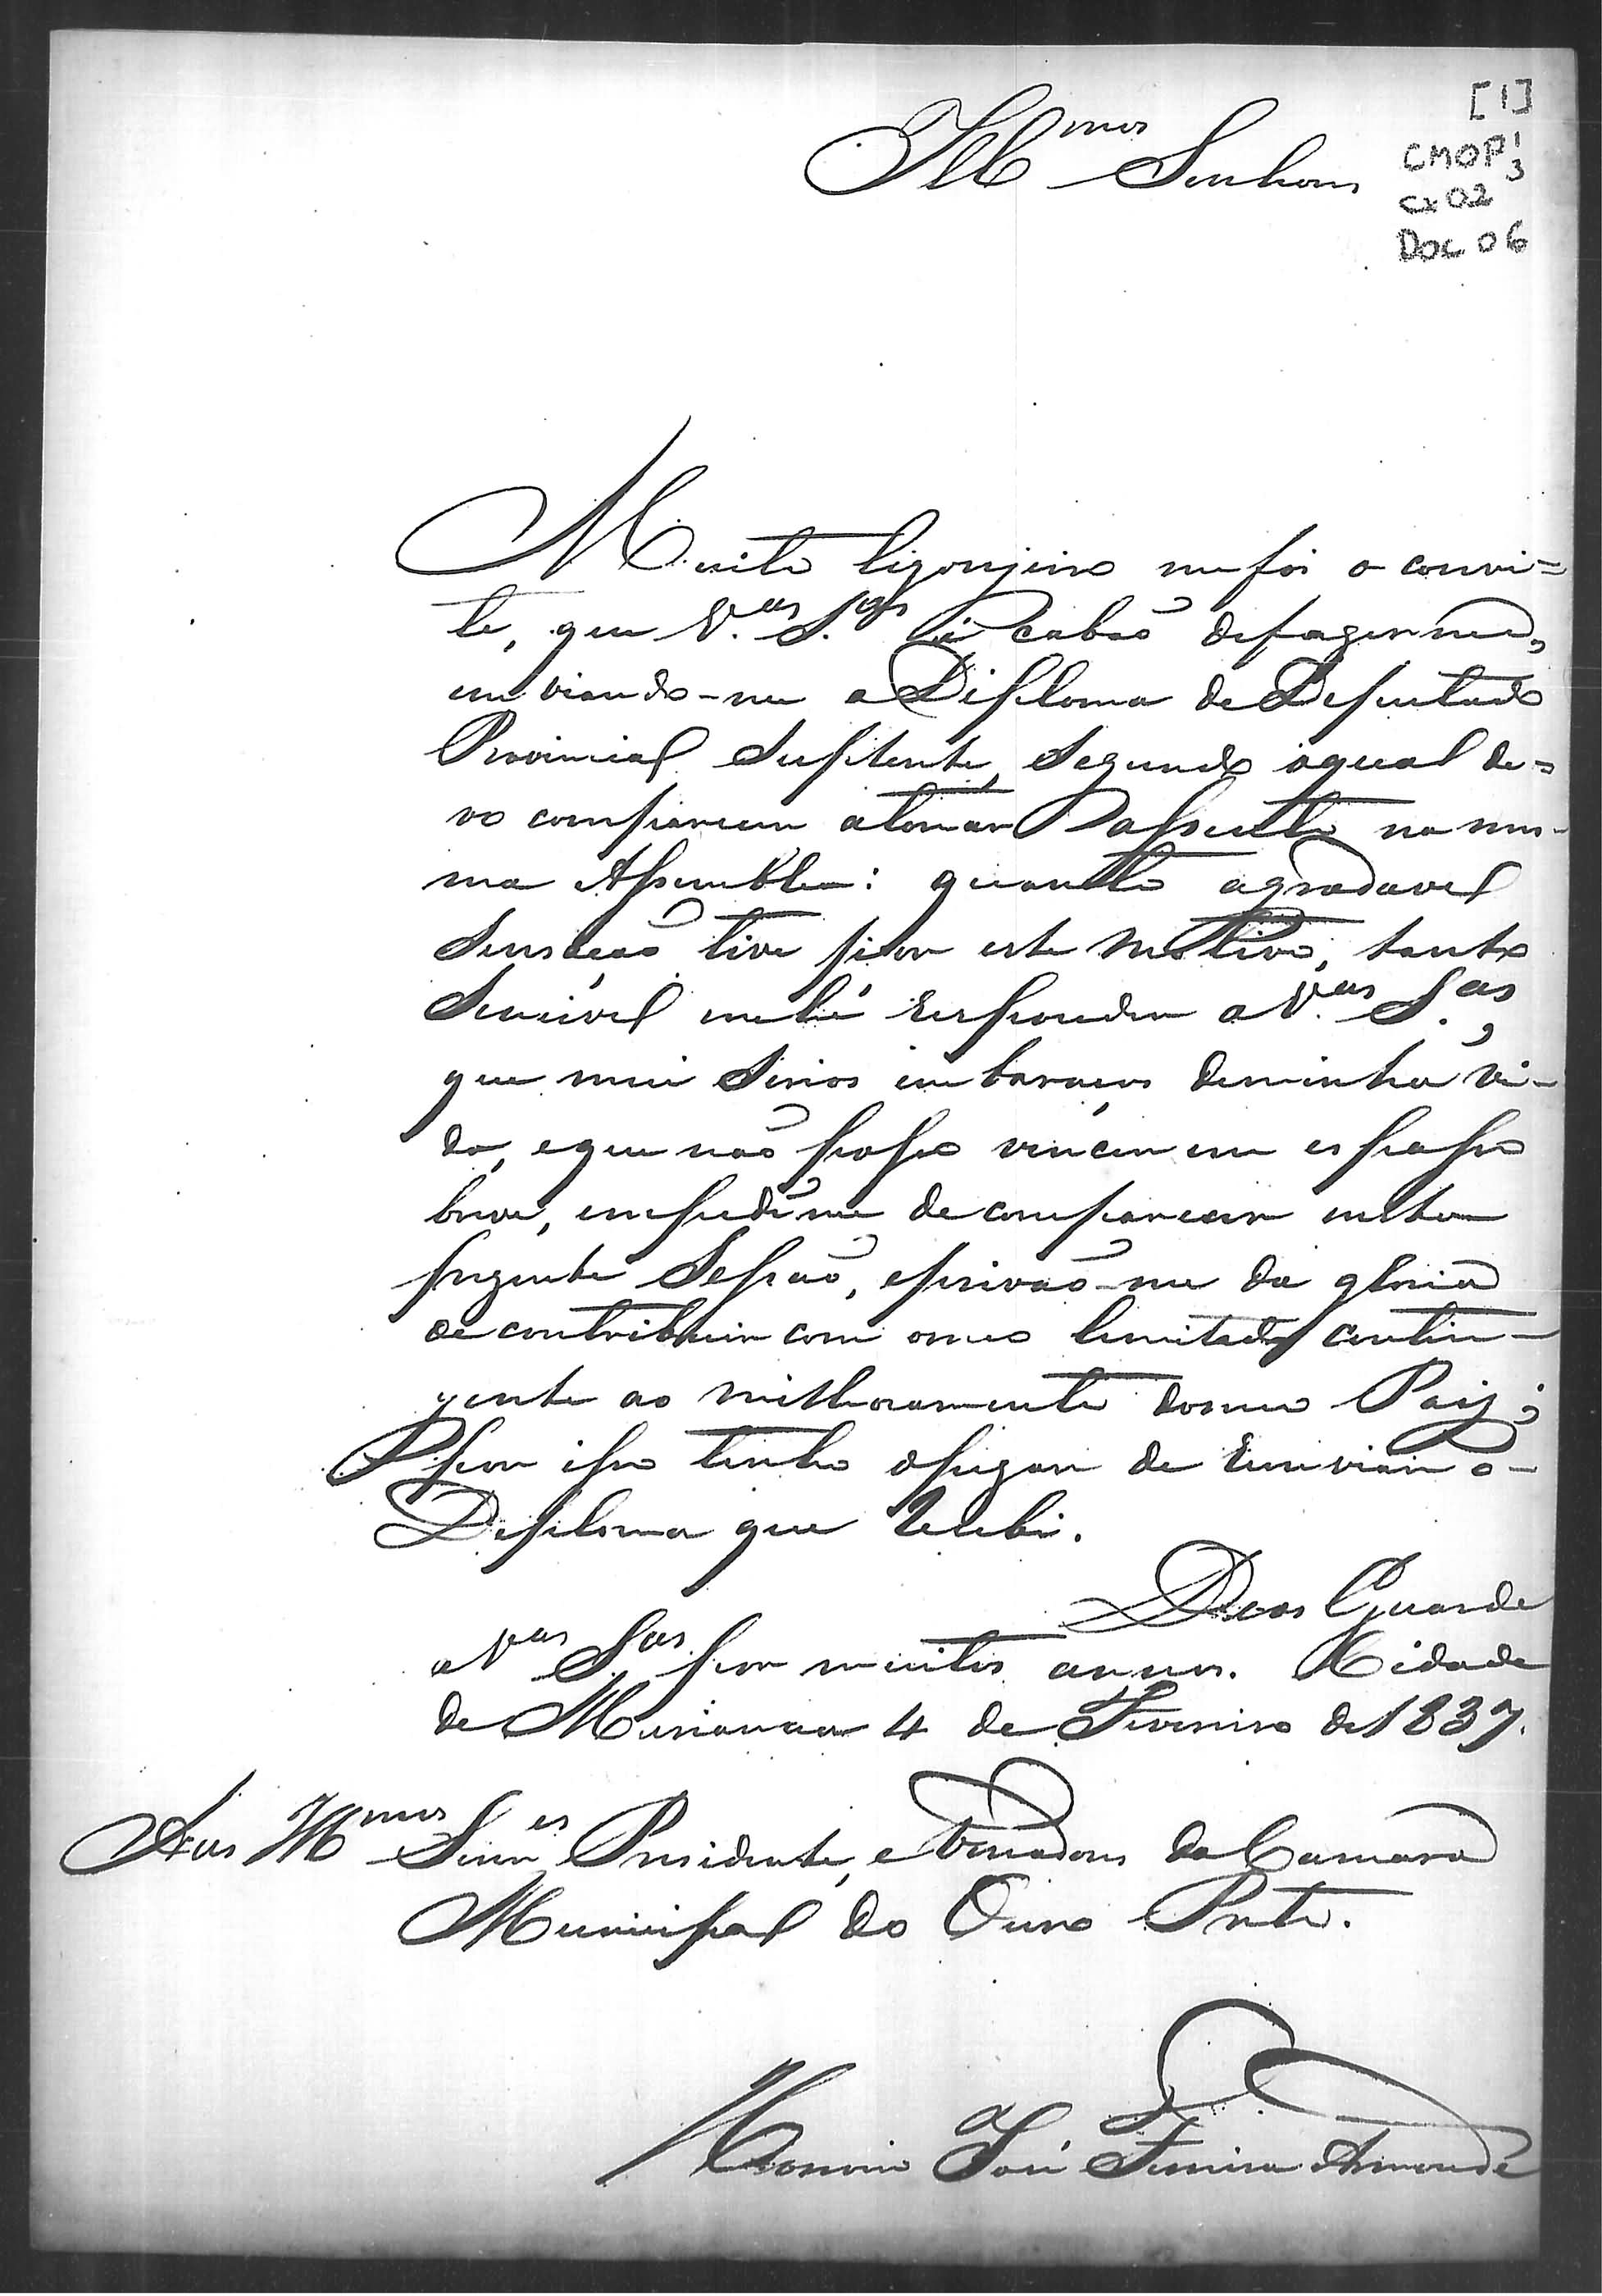 [1]
CMOP 1/3
cx 02
Doc 06
Illmos Senhores
Muito lizongeiro me foi o convi=
te, que V.as S.as acabão defazerme,
enviando-me o Diploma de Deputado
Provincial Suplente, segundo oqual de=
vo comparecer atomar assento na mes-
ma Assemblea: quanto agradavel
sensação tive por este motivo, tanto
sencivel mehé responder a V.as S.as,
que mui serios embaraços deminha vi-
da, eque não posso vencer em espasso
breve, empedem me de comparecer nesta
prezente Sessão, eprivão-me da gloria
de contribuir com omeo limitado contin-
gente ao milhoramento domeo Paiz;
por isso tenho opezar de enviar o-
Diploma que recebi.
Deos Guarde
a V.as S.as por muitos annos. Cidade
de Marianna 4 de Fevereiro de 1837.
Aos Illmos Senres Presidente, e Vereadores da Camara
Municipal do Ouro Preto.
José Ferreira Armonde